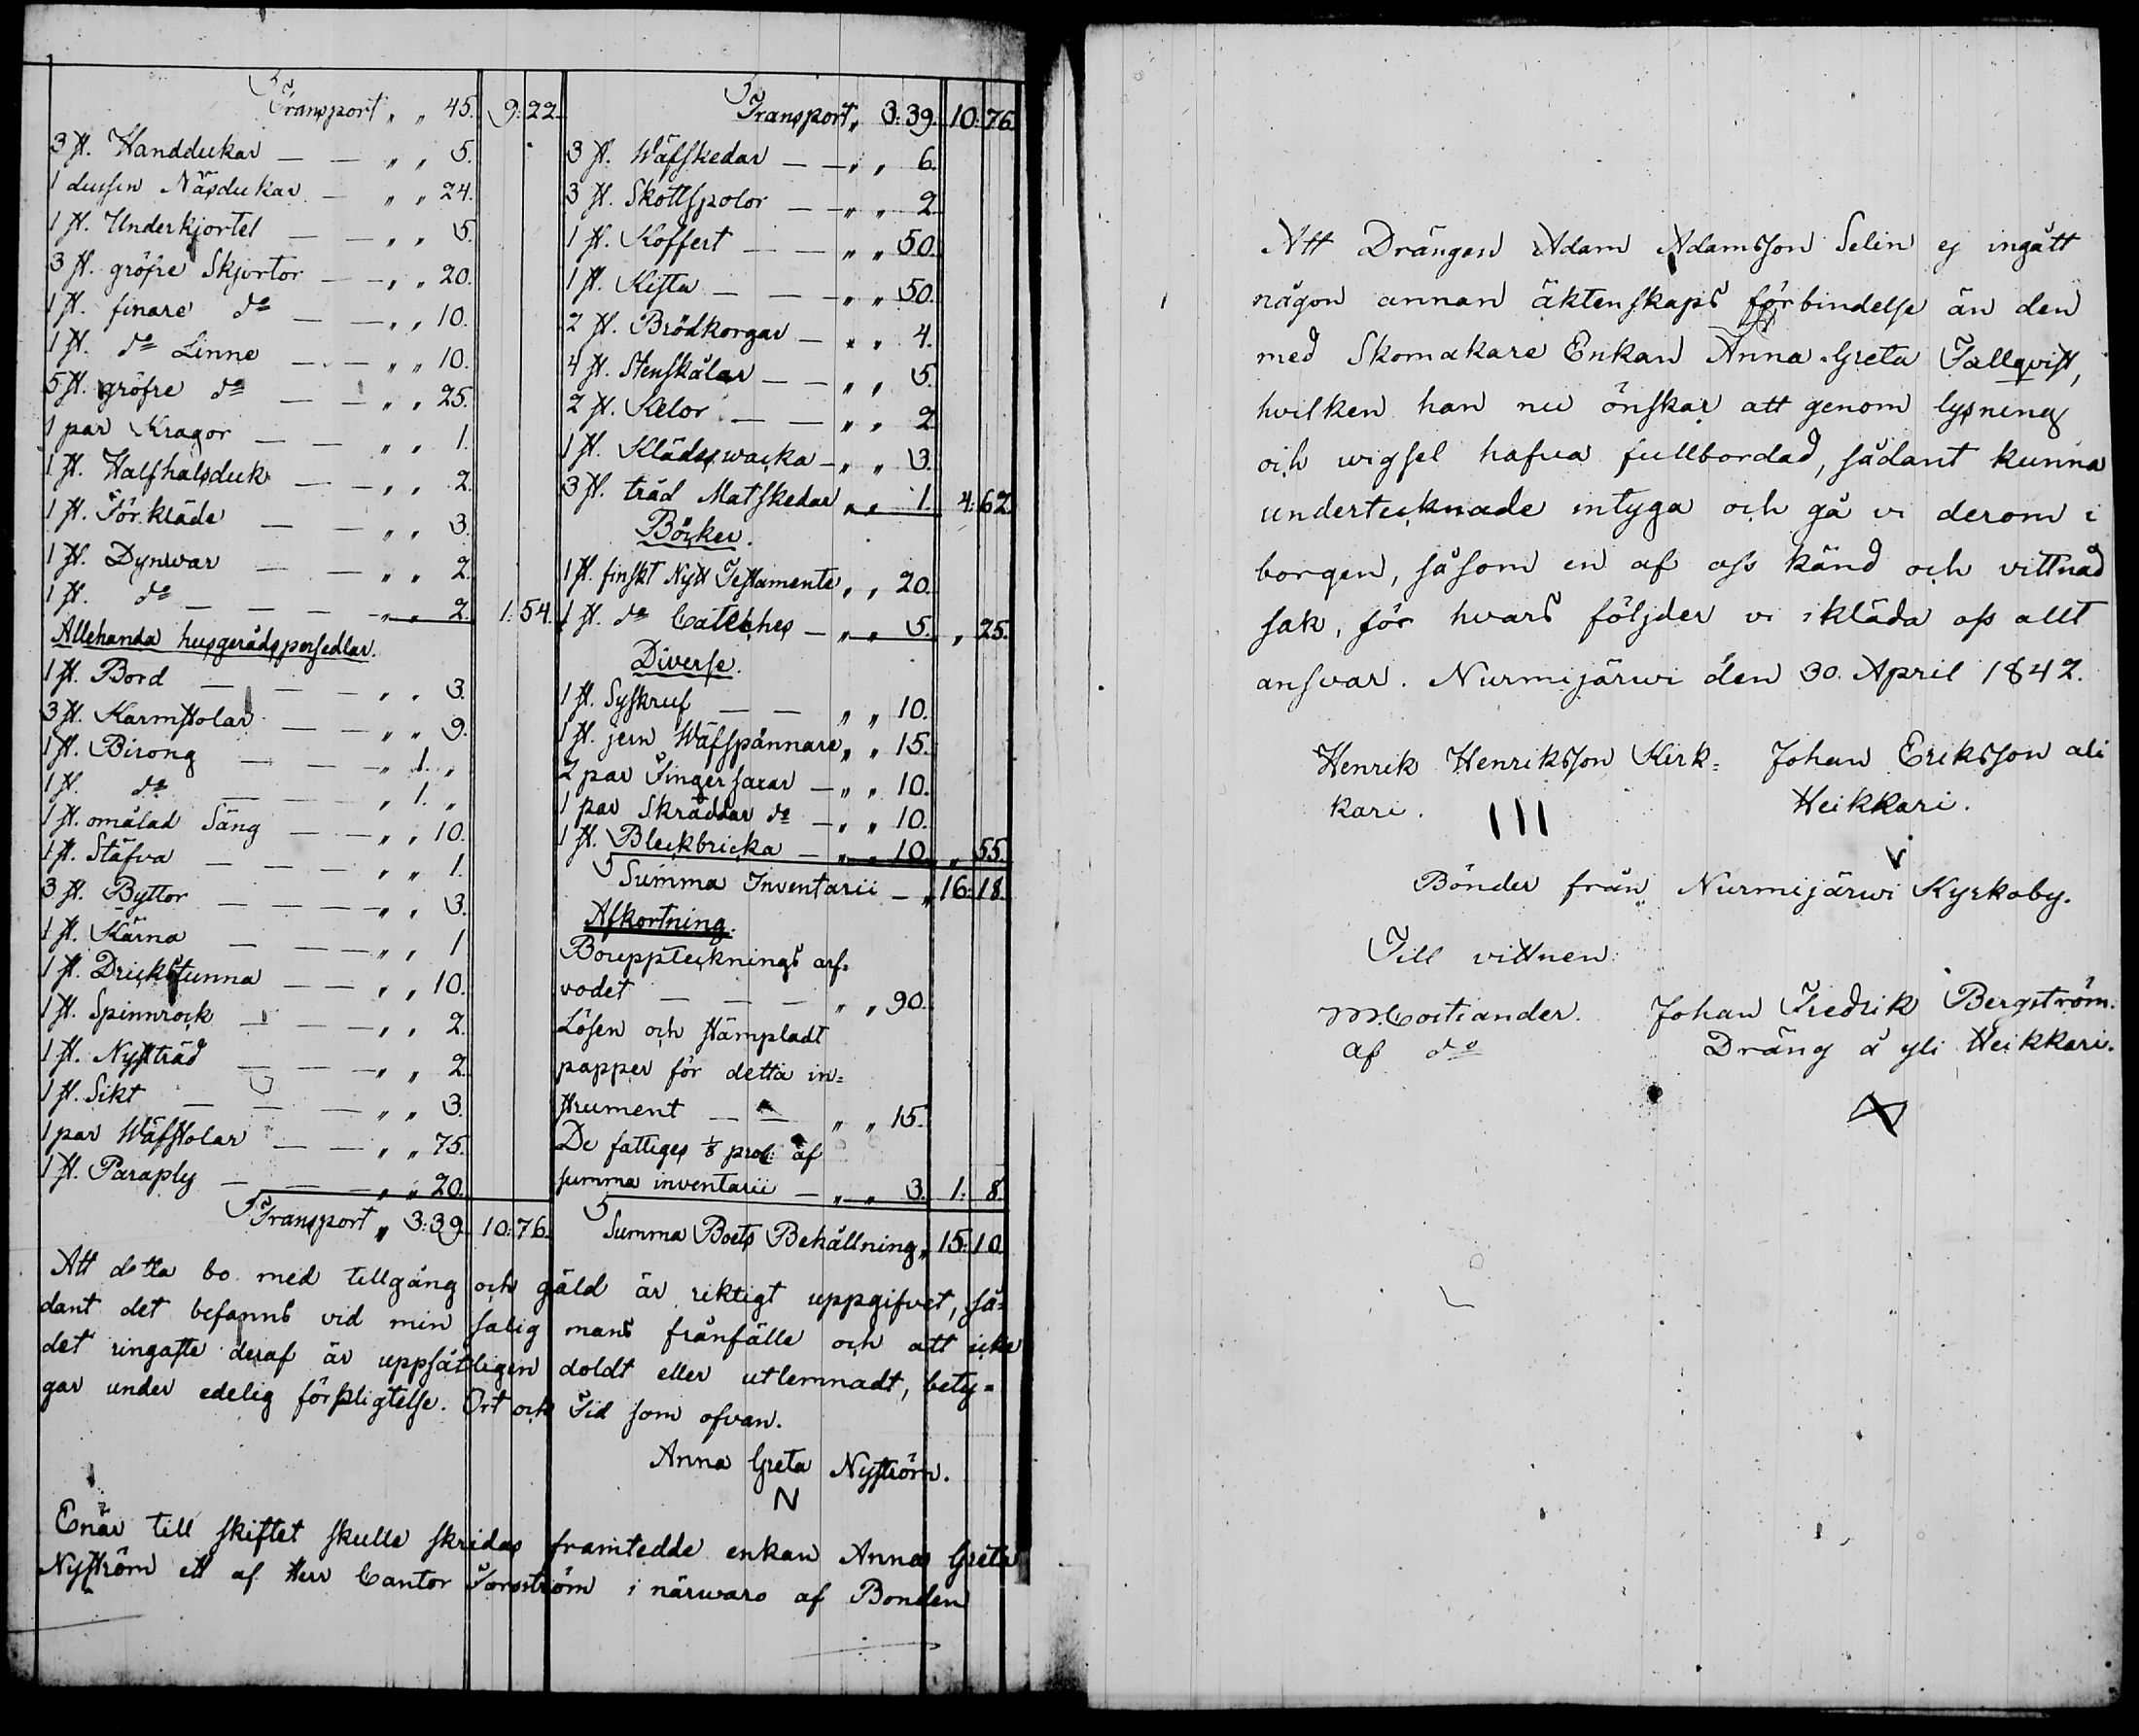 Transport „ „ 45. 9: 22.
3 st. Handdukar — — „ „ 5.
1 dussin Näsdukar — „ „ 24.
1 st. Underkjortel — — „ „ 5.
3 st. gröfre Skjortor — „ „ 20.
1 st. finare do — — „ „ 10.
1 st. do Linne — — „ „ 10.
5 st. gröfre do — — „ „ 25.
1 par Kragor — — „ „ 1.
1 st. Halfhalsduk — — „ „ 2.
1 st. Förkläde — — „ „ 3.
1 st. Dynwar — — „ „ 2.
1 st. do — — — „ „ 2. 1: 54.
Allehanda husgerådspersedlar.
1 st. Bord — — — „ „ 3.
3 st. Karmstolar — — „ „ 9.
1 st. Birong — — — „ 1. „
1 st. do — — — „ 1. „
1 st. omålad Säng — — „ „ 10.
1 st. Stäfva — — — „ „ 1.
3 st. Byttor — — — „ „ 3.
1 st. Kärna — — — „ „ 1
1 st. Drickstunna — — „ „ 10.
1 st. Spinnrock — — — „ „ 2.
1 st. Nystträd — — — „ „ 2.
1 st. Sikt — — — „ „ 3.
1 par Wäfstolar — — „ „ 75.
1 st. Paraply — — — „ „ 20.
Transport „ 3: 39. 10: 76.
Transport „ 3: 39. 10: 76.
3 st. Wäfskedar — — „ „ 6.
3 st. Skottspolor — — „ „ 2.
1 st. Koffert — — „ „ 50.
1 st. Kista — — — „ „ 50.
2 st. Brödkorgar — „ „ 4.
4 st. Stenskålar — — „ „ 5.
2 st. Kelor — — „ „ 2.
1 st. Klädswacka — „ „ 3.
3 st. träd Matskedar „ „ 1. 4: 62.
Böcker.
1 st. finskt Nytt Testamente „ „ 20.
1 st. do Cateches — „ „ 5. „ 25.
Diverse.
1 st. Syskruf — — „ „ 10.
1 st. jern Wäfspännare „ „ 15.
2 par Fingersaxar — „ „ 10.
1 par Skräddar do — „ „ 10.
1 st. Bleckbricka — „ „ 10. „ 55.
Summa Inventarii — „ 16: 18.
Afkortning.
Bouppteckningsarf=
vodet — — — „ „ 90.
Lösen och stämpladt
papper för detta in=
strument — — „ „ 15.
De fattiges 1/8 proc: af
summa inventarii — „ „ 3. 1. 8.
Summa Boets Behållning „ 15: 10.
Att detta bo med tillgång och gäld är riktigt uppgifvet, så=
dant det befanns vid min salig mans frånfälle och att icke
det ringaste deraf är uppsåtligen doldt eller utlemnadt, bety=
gar under edelig förpligtelse. Ort och Tid som ofvan.
Anna Greta Nyström.
N
Enär till skiftet skulle skridas framtedde enkan Anna Greta
Nyström ett af Herr Cantor Forsström i närwaro af Bonden
Att Drängen Adam Adamsson Selin ej ingått
någon annan äktenskaps förbindelse än den
med Skomakare Enkan Anna Greta Tallqvist,
hvilken han nu önskar att genom lysning
och wigsel hafva fullbordad, sådant kunna
undertecknade intyga och gå vi derom i
borgen, såsom en af oss känd och vittnad
sak, för hvars följder vi ikläda oss allt
ansvar. Nurmijärwi den 30. April 1842.
Henrik Henriksson Kirk= Johan Eriksson ali
kari. III Heikkari.
V
Bönder från Nurmijärwi Kyrkoby.
Till vittnen:
M. Costiander. Johan Fredrik Bergström.
af do Dräng å yli Heikkari.